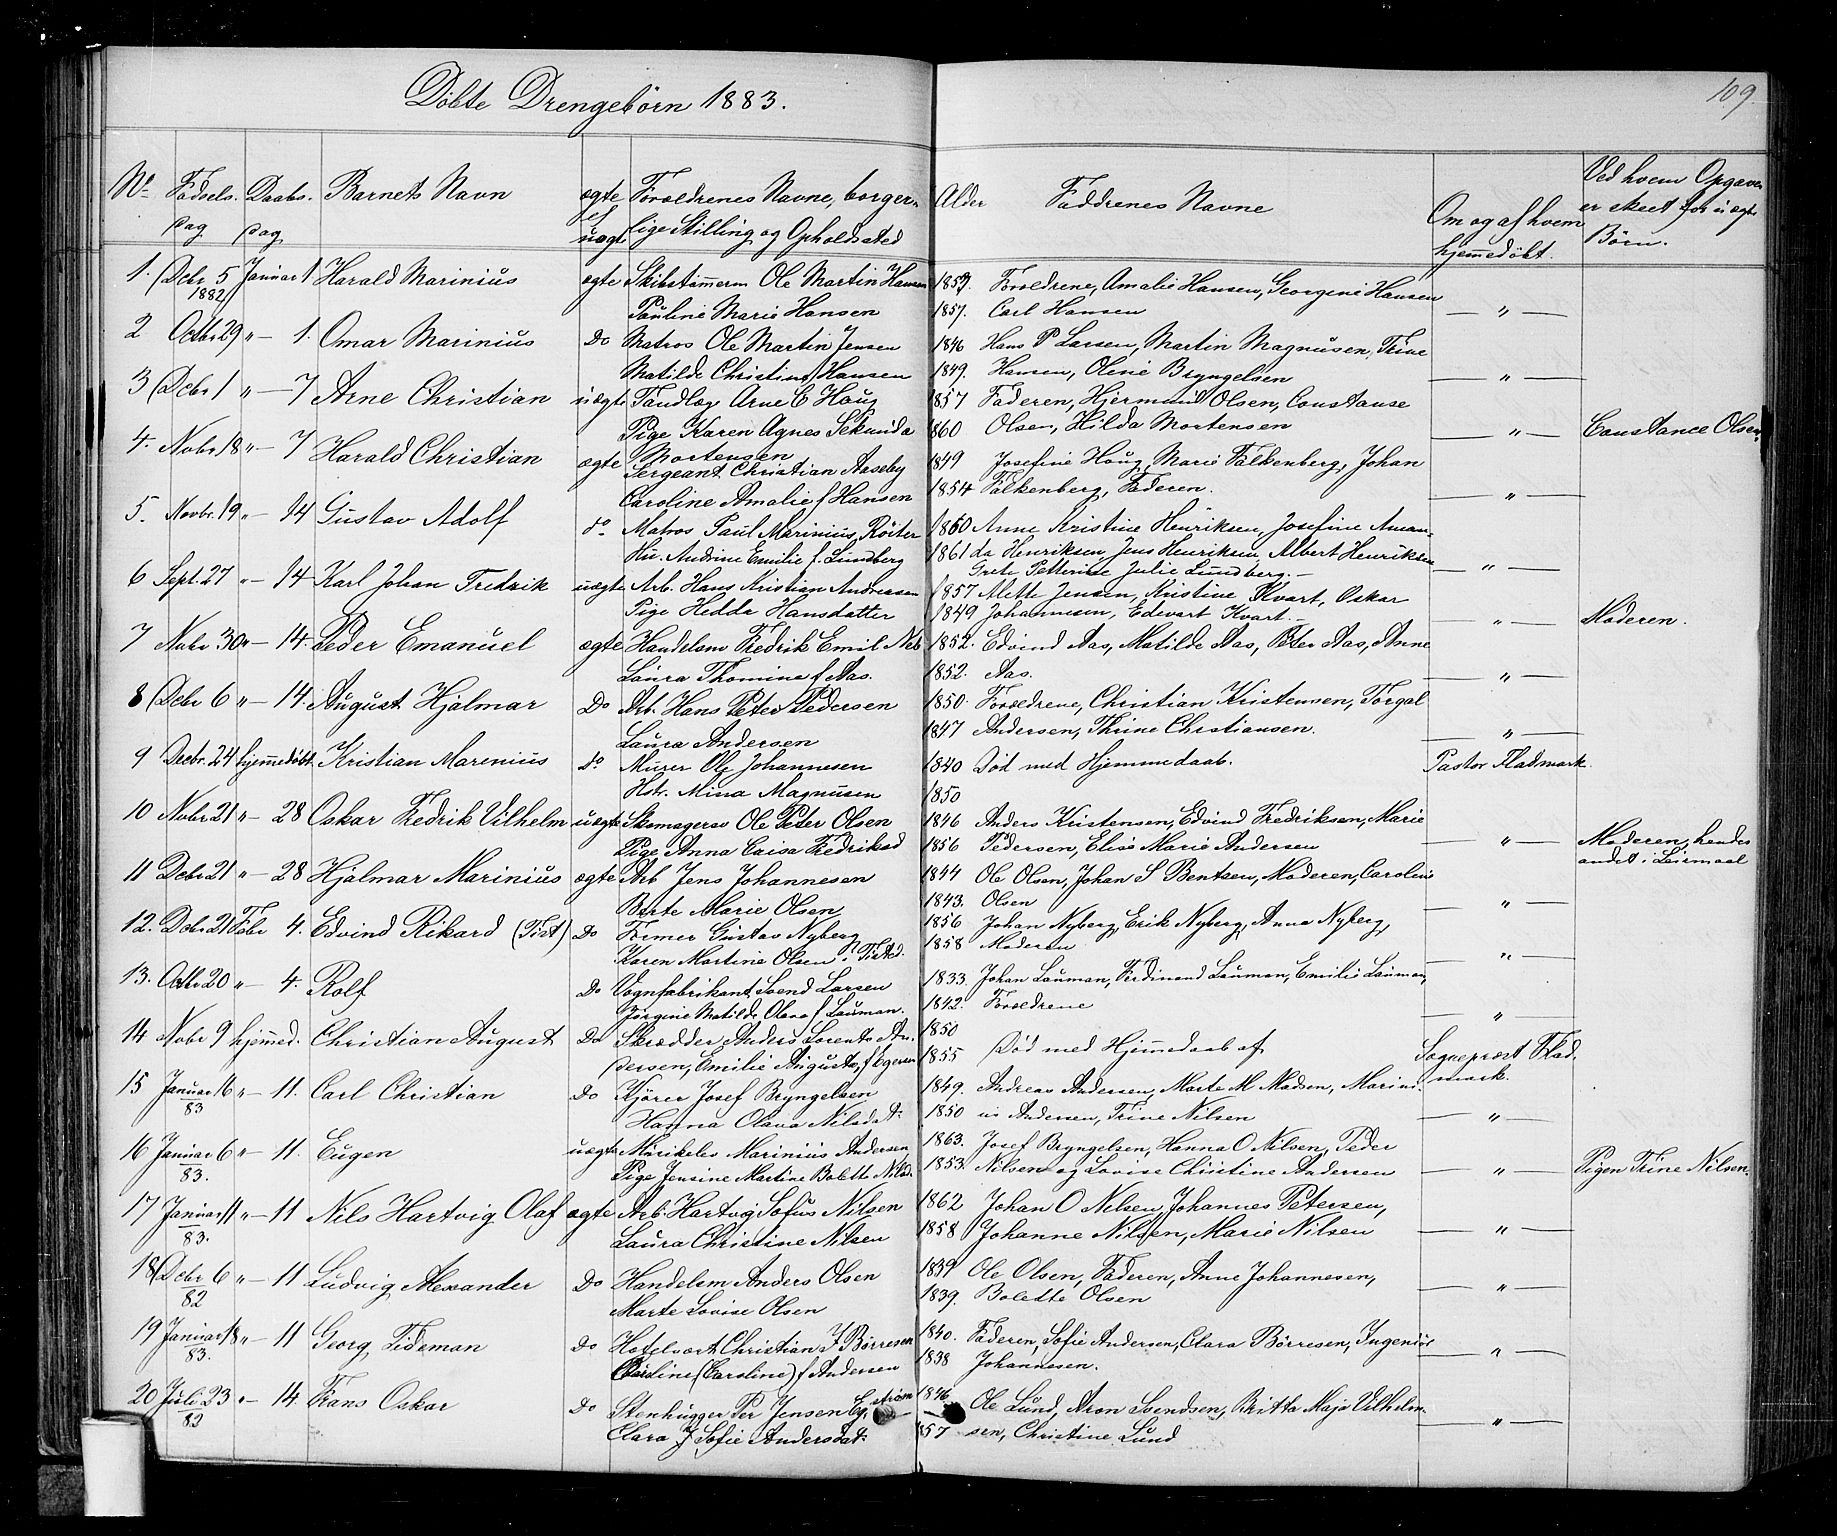 Döbte Drengebörn 1883.
109.
No Födsels dag Daabs dag Barnets Navn ægte el uægte Forældrenes Navne, borgerlige Stilling og Opholdssted Alder Faddrenes Navne Om og af hvem hjemmedöbt. Ved hvem Opgaven er skeet for uægte Börn.
1. Dcbr 5 1882 Januar 1 Harald Marinius ægte Skibstömmerm Ole Martin Hansen 1852. Forældrene, Amalie Hansen, Georgine Hansen
Pauline Marie Hansen 1857. Carl Hansen — " —
2 Octbr 29 " — 1. Omar Marinius Do Matros Ole Martin Jensen 1846 Hans P Larsen, Martin Magnusen, Trine
Matilde Christine Hansen 1849. Hansen, Oline Bryngelsen — " —
3 Dcbr 1 " — 7 Arne Christian uægte Tandlæg Arne C Haug 1857 Faderen, Hjermund Olsen, Constanse
Pige Karen Agnes Sekunda 1860 Olsen, Hilda Mortensen — " — Constance Olsen
Mortensen
4. Nobr 18 " — 7 Harald Christian ægte Sergeant Christian Aaseby 1849 Josefine Haug, Marie Falkenberg, Johan
Caroline Amalie f Hansen 1854 Falkenberg, Faderen. — " —
5. Novbr. 19 " — 14 Gustav Adolf do Matros Paul Marinius Röiter 1860 Anne Kristine Henriksen, Josefine Aman-
Hu. Andrine Emilie f. Lundberg 1861 da Henriksen, Jens Henriksen Albert Henriksen
Grete Petterine Julie Lundberg. — — " —
6 Sept. 27 " — 14 Karl Johan Fredrik uægte Arb. Hans Kristian Andreasen 1857 Mette Jensen, Kristine Kvart, Oskar
Pige Hedda Hansdatter 1849 Johannesen, Edevart Kvart. — — " — Moderen.
7 Nobr 30 " — 14. Peder Emanuel ægte Handelsm Fredrik Emil Neb 1852. Edvind Aas, Matilde Aas, Peter Aas, Anne
Laura Thomine f Aas. 1852. Aas. — " —
8 Dcbr 6 " — 14. August Hjalmar Do Arb. Hans Peter Pedersen 1850. Forældrene, Christian Kristensen, Torgal
Laura Andersen 1847 Andersen, Thrine Christiansen. — " —
9 Decbr. 24 hjemmedöbt Kristian Marenius do Murer Ole Johannesen 1840 Död med Hjemmedaab. Pastor Fladmark.
Hstr. Mina Magnusen 1850
10 Nobr 21 " — 28 Oskar Fredrik Vilhelm uægte Skomagersv Ole Peter Olsen 1846 Anders Kristensen, Edvind Fredriksen, Marie
Pige Anna Caisa Fredriksd 1856 Pedersen, Elise Marie Andersen — " — Moderen, hendes andet i Leiermaal
11 Dcbr 21 " — 28 Hjalmar Marinius ægte Arb Jens Johannesen 1844 Ole Olsen, Johan S Bentsen, Moderen, Caroline
Berte Marie Olsen 1843. Olsen — " —
12. Dcbr 21 Febr 4. Edvind Rikard (Tist) Do Fremer Gustav Nyberg 1856 Johan Nyberg, Erik Nyberg, Anna Nyberg,
Karen Martine Olsen i Tisted. 1858 Moderen — " —
13. Octbr 20 " — 4. Rolf Do Vognfabrikant Svend Larsen 1833. Johan Lauman, Ferdinand Lauman, Emilie Lauman,
Jörgine Matilde Olava f Lauman. 1842. Forældrene — " —
14 Nobr 9 hjemmed. Christian August Do Skrædder Anders Lorents An- 1850
dersen, Emilie Augusta, f Egeren 1855 Död med Hjemmedaab af Sogneprest Fladmark.
15 Januar 16 83 " — 11. Carl Christian Do Kjörer Josef Bryngelsen 1849. Andreas Andersen, Marte M. Madsen, Marini-
Hanna Olava Nilsdat: 1850 us Andersen, Trine Nilsen — " —
16 Januar 6 83. " — 11. Eugen uægte Mürikeles Marinius Andersen 1863. Josef Bryngelsen, Hanna O Nilsen, Peder
Pige Jensine Martine Bolette Nilsd. 1853. Nilsen og Lovise Christine Andersen — " — Pigen Trine Nilsen.
17 Januar 11 83. " — 11 Nils Hartvig Olaf ægte Arb. Hartvig Sofus Nilsen 1862 Johan O Nilsen, Johannes Petersen,
Laura Christine Nilsen 1858 Johanne Nilsen, Marie Nilsen — " —
18 Dcbr 6 82 " — 11 Ludvig Alexander Do Handelsm Anders Olsen 1839 Ole Olsen, Faderen, Anne Johannesen,
Marte Lovise Olsen 1839. Boledte Olsen — " —
19 Januar 18 83. " — 11 Georg Tideman Do Hotelvert Christian J Börresen 1840. Faderen, Sofie Andersen, Clara Börresen, Ingeniör
(Caroline) f Andersen 1838 Johannesen. — " —
20 Juli 23 82 " — 14. Frans Oskar Do Stenhugger Per Jensen Byström 1846 Ole Lund, Aron Svendsen, Britta Maja Vilhelm-
Clara J Sofie Andersdat: 1857 sen, Christine Lund — " —